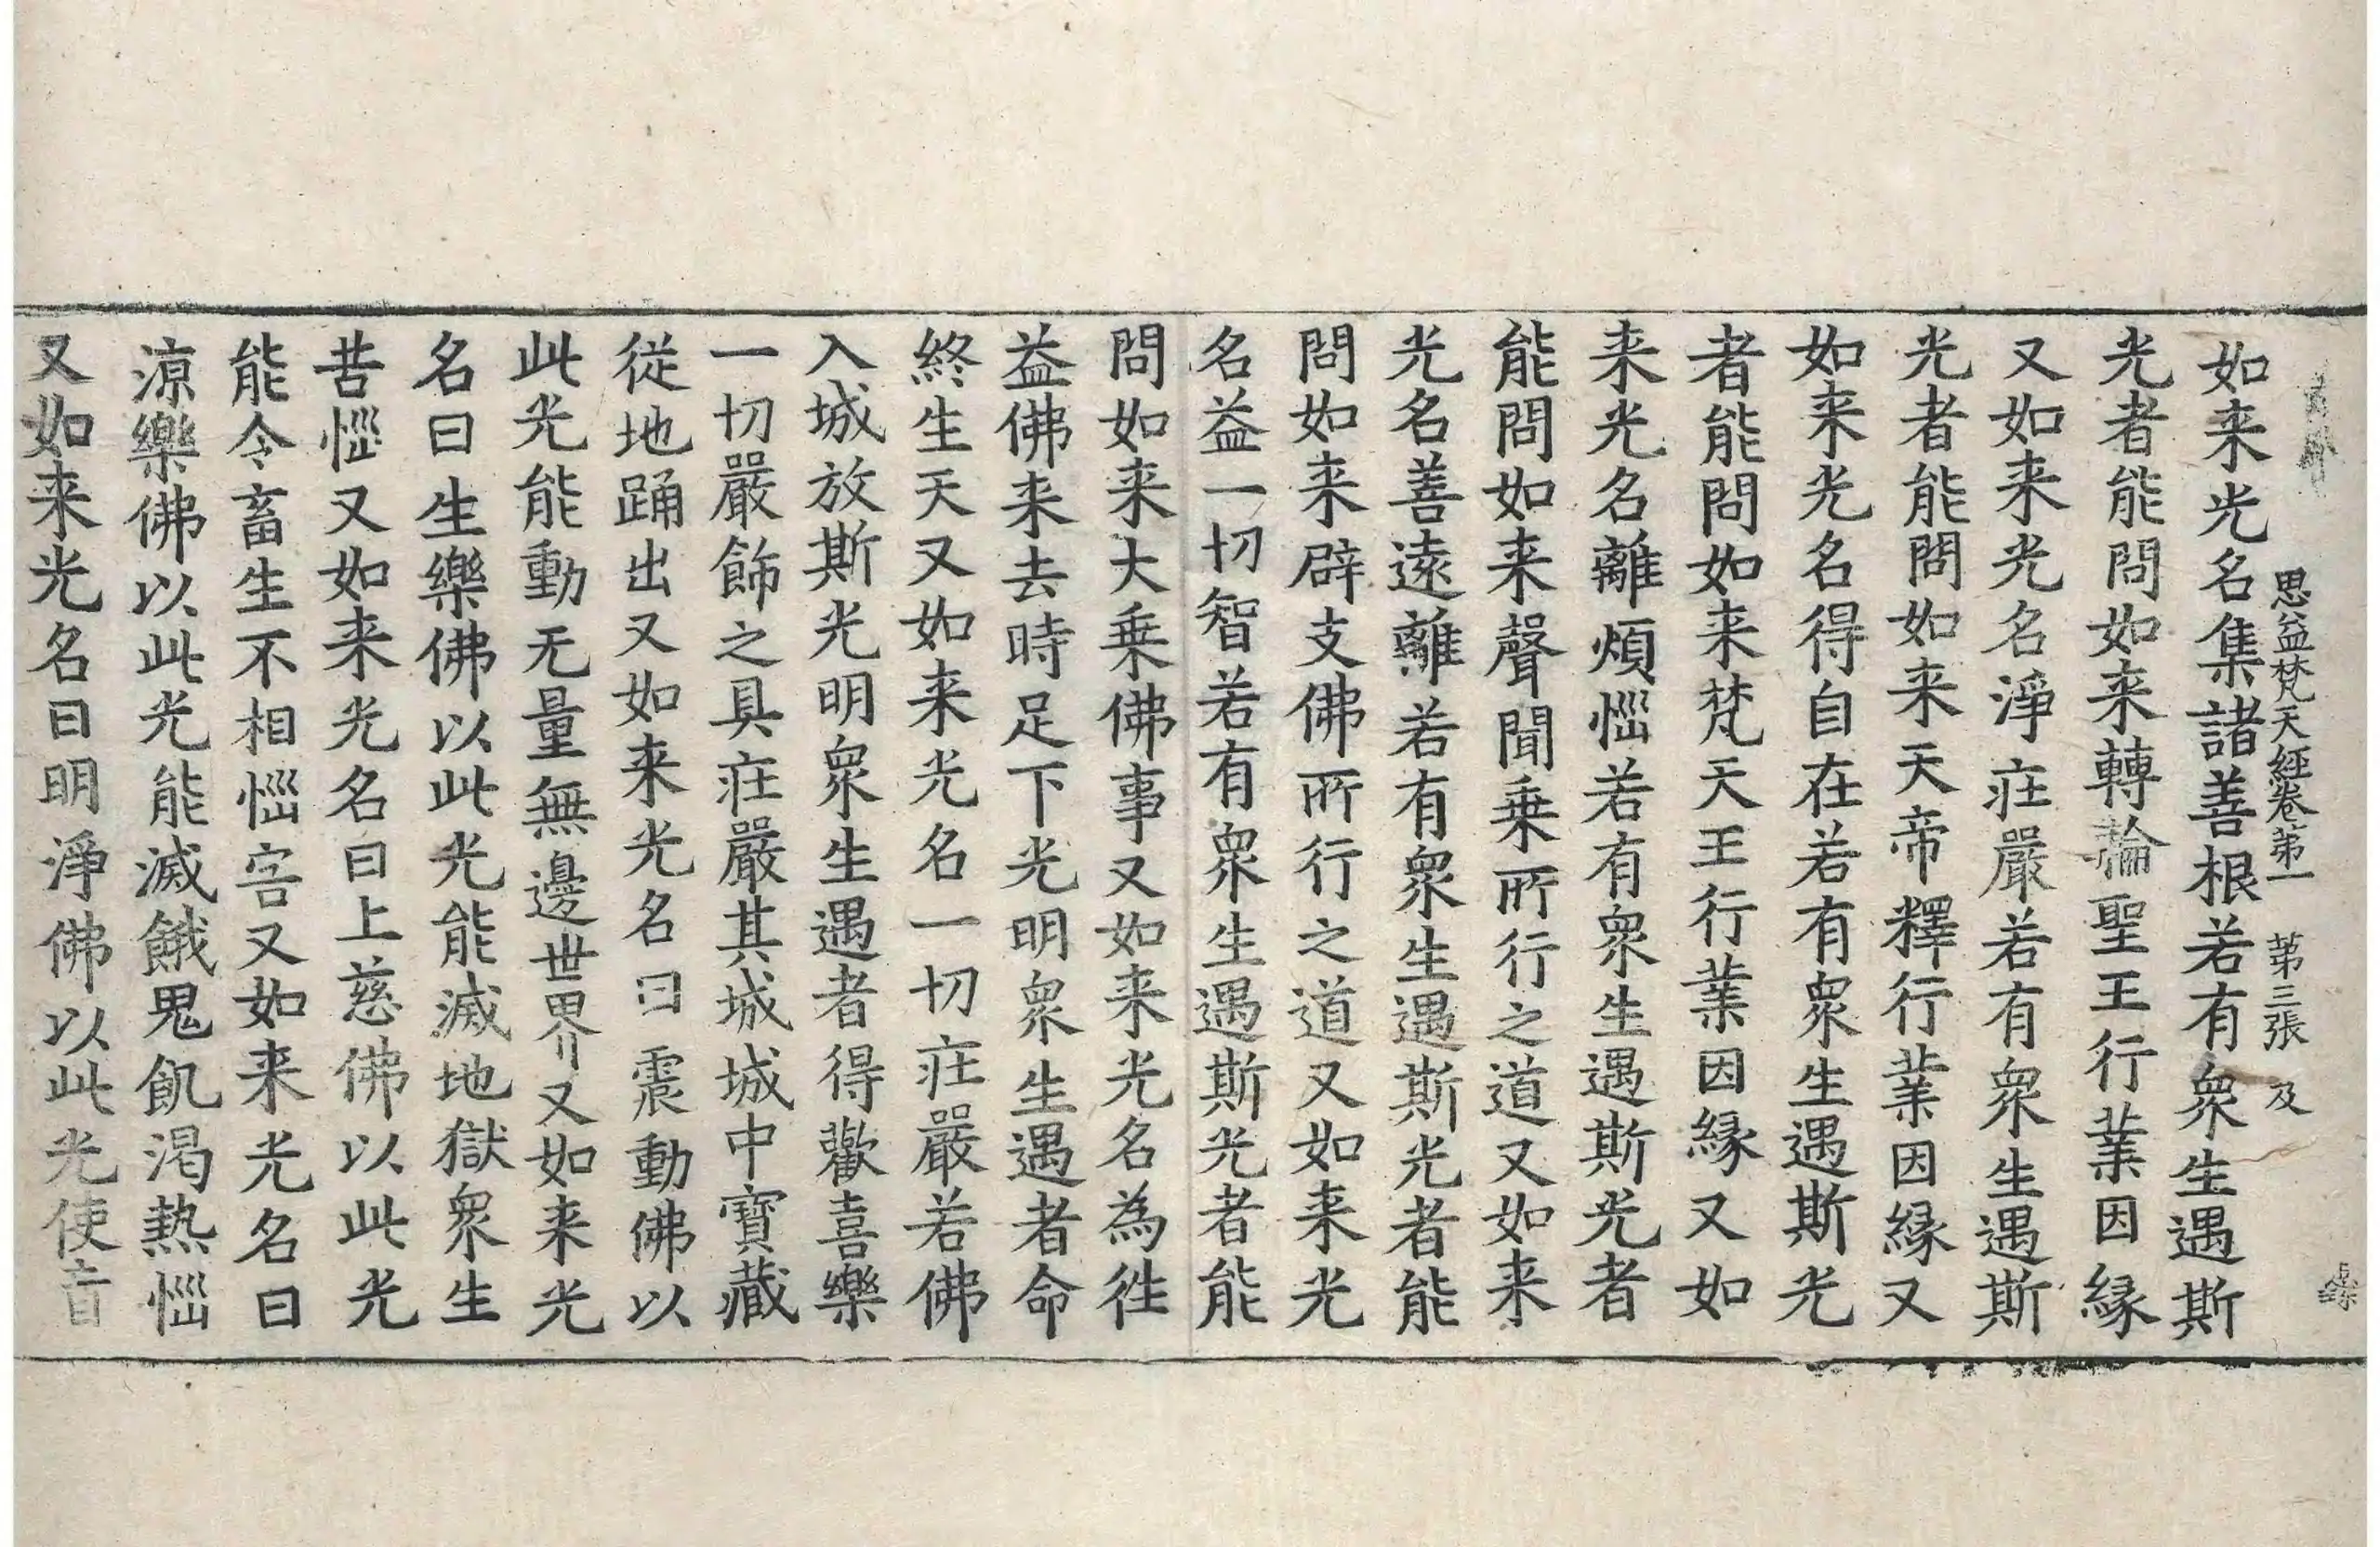 思益梵天經卷第一 第三張 及
如来光名集諸善根若有衆生遇斯
光者能問如来轉輪聖王行業因縁
又如来光名淨庄嚴若有衆生遇斯
光者能問如来天帝釋行業因縁又
如来光名得自在若有衆生遇斯光
者能問如来梵天王行業因縁又如
来光名離煩惱若有衆生遇斯光者
能問如来聲聞乗所行之道又如来
光名善遠離若有衆生遇斯光者能
問如来辟支佛所行之道又如来光
名益一切智若有衆生遇斯光者能
問如来大乗佛事又如来光名為徃
益佛来去時足下光明衆生遇者命
終生天又如来光名一切庄嚴若佛
入城放斯光明衆生遇者得歡喜樂
一切嚴飾之具庄嚴其城城中寶藏
從地踊出又如来光名曰震動佛以
此光能動无量無邊世界又如来光
名曰生樂佛以此光能滅地獄衆生
苦惱又如来光名曰上慈佛以此光
能令畜生不相惱害又如来光名曰
凉樂佛以此光能滅餓鬼飢渇熱惱
又如来光名曰明淨佛以此光使盲